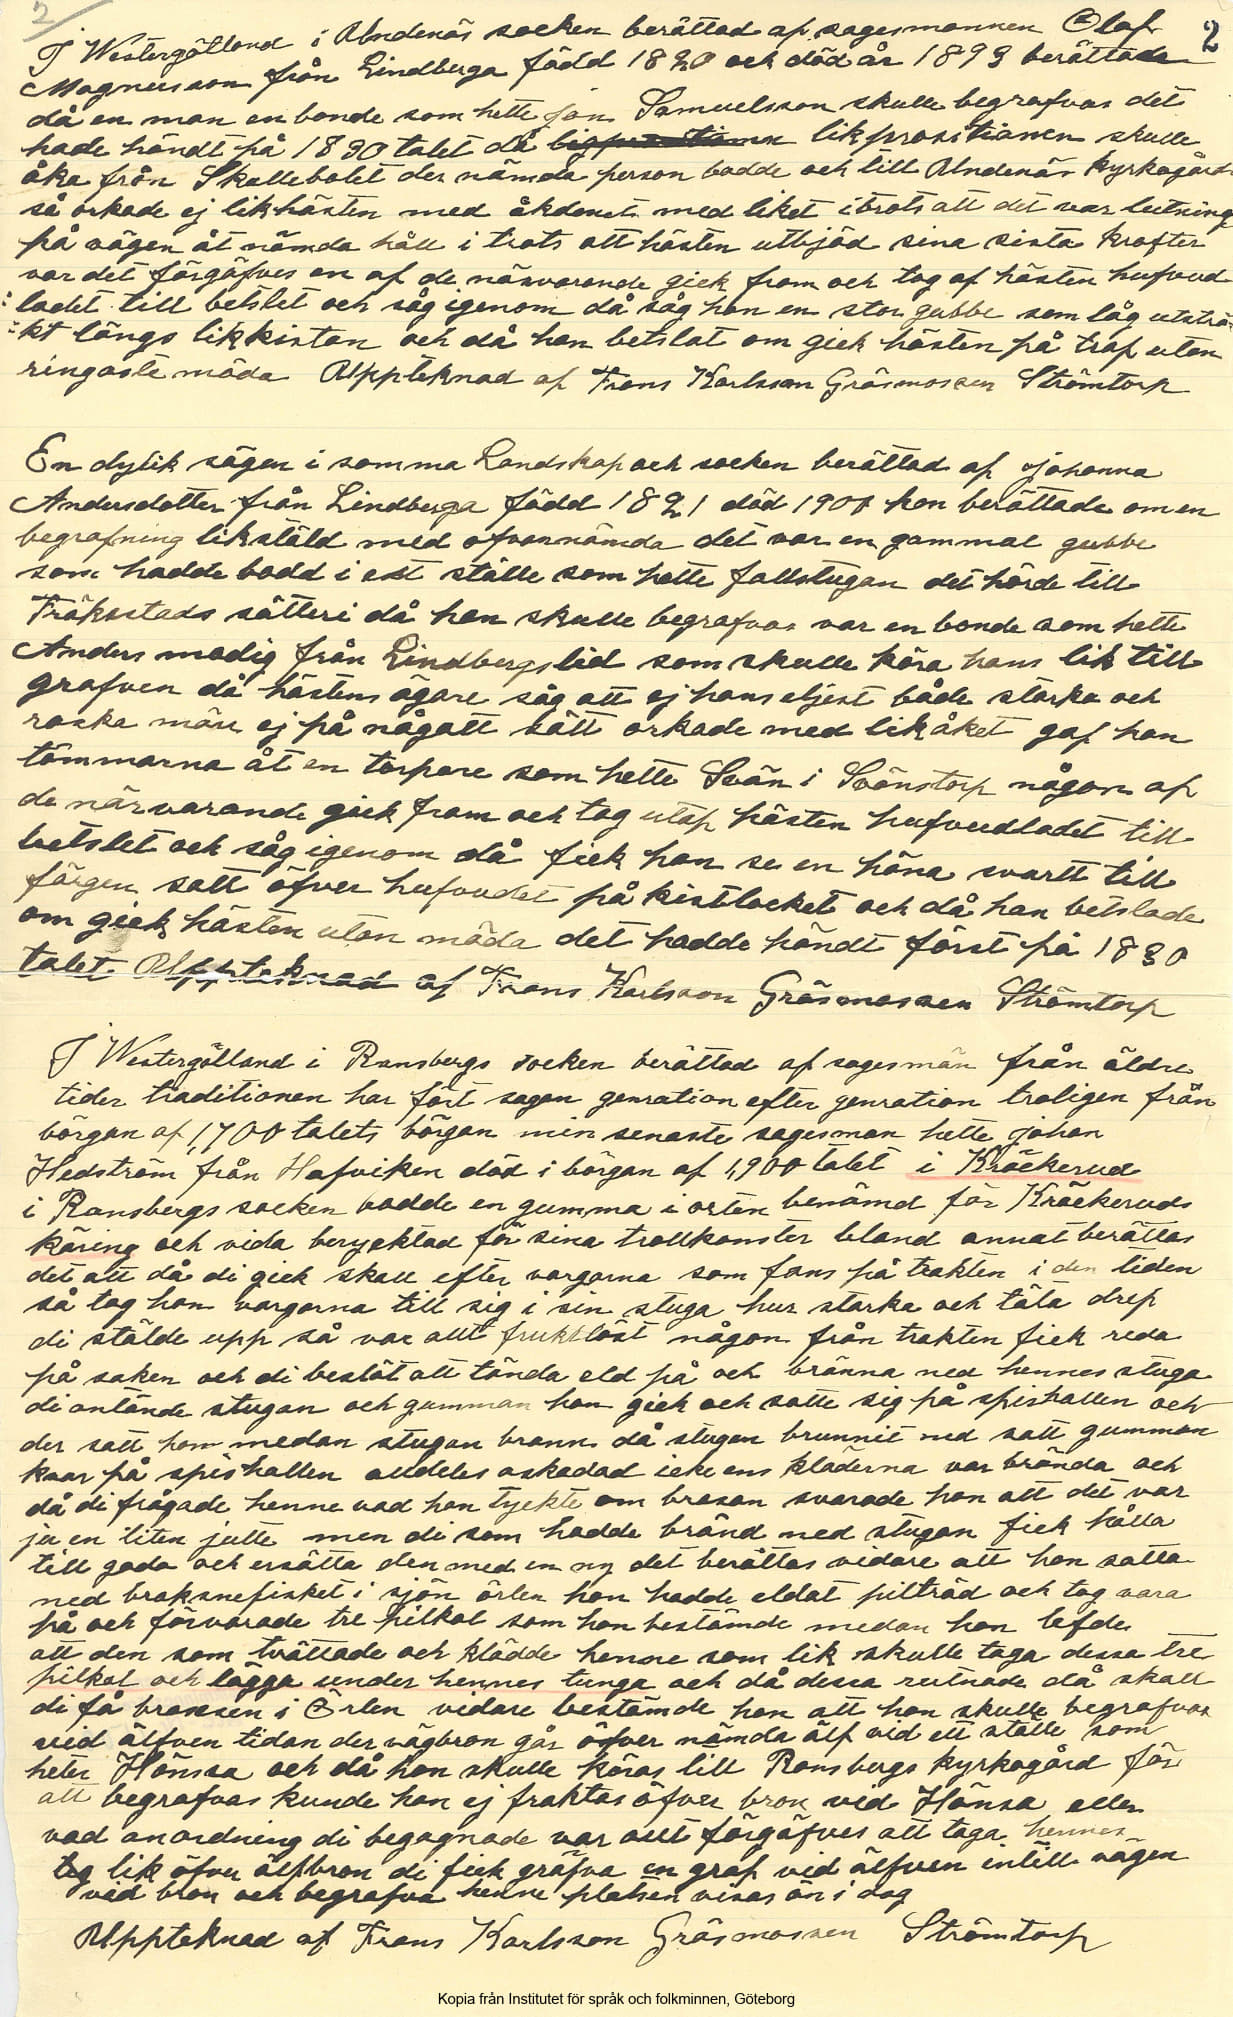 2
2
I Westergötland i Undenäs socken berättad af sagesmannen Olaf
Magnusson från Lindberga född 1820 och död år 1893 berättade
då en man en bonde som hette jon Samuelsson skulle begrafvas det
hade händt på 1830 talet då likprositianen skulle
åka från Skallebolet der nämda person bodde och till Undenäs kyrkogård
så orkade ej likhästen med åkdonet med liket i trots att det var lutning
på vägen åt nämda håll i trots att hästen utbjöd sina sista krafter
var det förgäfves en af de närvarande gick fram och tog af hästen hufvud
ladet till betslet och såg igenom då såg han en stor gubbe som låg utsträ-
kt längs likkistan och då han betslat om gick hästen på traf utan
ringaste möda Uppteknad af Frans Karlsson Gräsmossen Strömtorp
En dylik sägen i samma Landskap och socken berättad af johanna
Andersdotter från Lindberga född 1821 död 1900 hon berättade om en
begrafning likstäld med ofvannämda det var en gammal gubbe
som hadde bodd i ett ställe som hette fallstugan det hörde till
Fräkostads sätteri då han skulle begrafvas var en bonde som hette
Anders modig från Lindbergslid som skulle köra hans lik till
grafven då hästens ägare såg att ej hans eljest både starka och
raska märr ej på någott sätt orkade med likåket gaf han
tömmarna åt en torpare som hette Svän i Svänstorp någon af
de närvarande gick fram och tog utaf hästen hufvudladet till
betslet och såg igenom då fick han se en höna svartt till
färgen satt öfver hufvudet på kistlocket och då han betslade
om gick hästen utan möda det hadde händt först på 1830
talet. Uppteknad af Frans Karlsson Gräsmossen Strömtorp
I Westergötland i Ransbergs socken berättad af sagesmän från äldre
tider traditionen har fört sagan genration efter genration troligen från
börgan af 1,700 talets börgan min senaste sagesman hette johan
Hedström från Hafviken död i börgan af 1,900 talet i Kräckerud
i Ransbergs socken bodde en gumma i orten benämd för Kräckeruds
käring och vida berycktad för sina trollkonster bland annat berättas
det att då di gick skall efter vargarna som fans på trakten i den tiden
så tog hon vargarna till sig i sin stuga hur starka och täta drep
di stälde upp så var allt frukttlöst någon från trakten fick reda
på saken och di beslöt att tända eld på och bränna ned hennes stuga
di antände stugan och gumman hon gick och satte sig på spishallen och
der satt hon medan stugan brann då stugan brunnit ned satt gumman
kvar på spishallen alldeles oskadad icke ens kläderna var brända och
då di frågade henne vad hon tyckte om brasan svarade hon att det var
ju en liten jutte men di som hadde bränd ned stugan fick hålla
till goda och ersätta den med en ny det berättas vidare att hon satta
ned braksnefisket i sjön örlen hon hadde eldat pilträd och tog vara
på och förvarade tre pilkol som hon bestämde medan hon lefde
att den som tvättade och klädde henne som lik skulle taga dessa tre
pilkol och lägga under hennes tunga och då dessa rutnade då skall
di få braxsen i Örlen vidare bestämde hon att hon skulle begrafvas
vid älfven tidan der vägbron går öfver nämda älf vid ett ställe som
heter Hönsa och då hon skulle köras till Ransbergs kyrkogård för
att begrafvas kunde hon ej fraktas öfver bron vid Hönsa eller
vad anordning di begagnade var allt förgäfves att taga hennes
lik öfver älfbron di fick gräfva en graf vid älfven intill vägen
vid bron och begrafva henne platsen visas än i dag
Uppteknad af Frans Karlsson Gräsmossen Strömtorp
Kopia från Institutet för språk och folkminnen, Göteborg